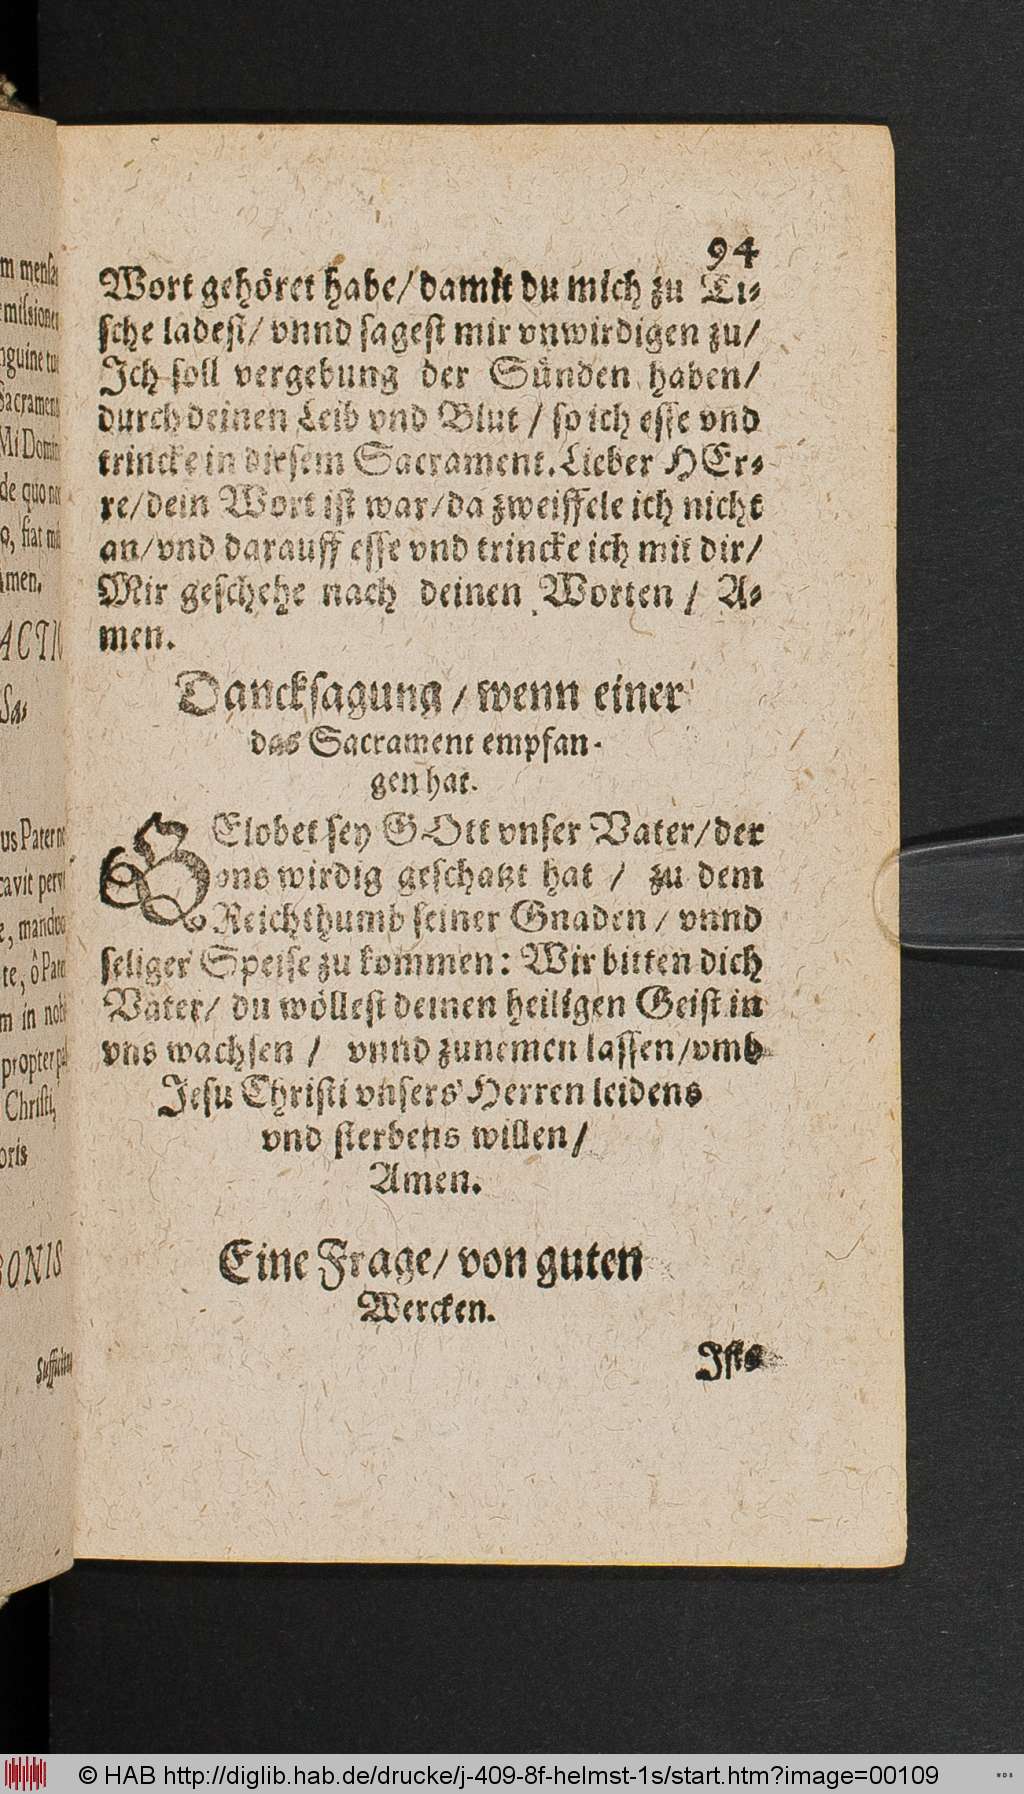 94
Wort gehöret habe/ damit du mich zu Ti-
sche ladest/ vnnd sagest mir vnwirdigen zu/
Ich soll vergebung der Sünden haben/
durch deinen Leib vnd Blut / so ich esse vnd
trincke in diesem Sacrament. Lieber HEr-
re/ dein Wort ist war/ da zweiffele ich nicht
an/ vnd darauff esse vnd trincke ich mit dir/
Mir geschehe nach deinen Worten / A-
men.
Dancksagung / wenn einer
das Sacrament empfan-
gen hat.
GElobet sey GOtt vnser Vater/ der
vns wirdig geschatzt hat / zu dem
Reichthumb seiner Gnaden / vnnd
seliger Speise zu kommen: Wir bitten dich
Vater/ du wöllest deinen heiligen Geist in
vns wachsen / vnnd zunemen lassen/ vmb
Jesu Christi vnsers Herren leidens
vnd sterbens willen/
Amen.
Eine Frage/ von guten
Wercken.
Ists
m mensa
emissionem
nguine tu
Sacrament
Mi Domin
de quo no
o, fiat mi
Amen.
ACTI
Sa-
us Pater n
cavit perv
e, manduc
te, ô Pate
m in nob
propter p
Christi,
oris
BONIS
© HAB http://diglib.hab.de/drucke/j-409-8f-helmst-1s/start.htm?image=00109